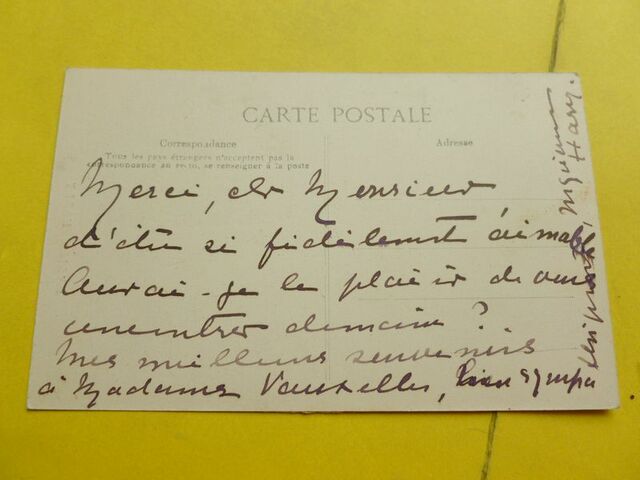 CARTE POSTALE
Correspondance
Adresse
Tous les pays étrangers n'acceptent pas la
correspondance au recto, se renseigner à la poste
Merci, cher Monsieur
d'être si fidèlement aimable
Aurai-je le plaisir de vous
rencontrer demain ?
Mes meilleurs souvenirs
à Madame Vauxelles, bien sympa